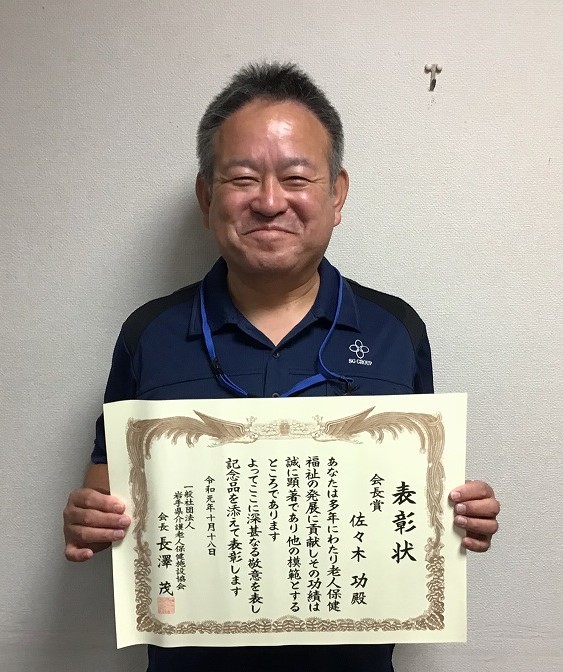 表彰状
会長賞
佐々木 功殿
あなたは多年にわたり老人保健
福祉の発展に貢献しその功績は
誠に顕著であり他の模範とする
ところであります
よってここに深甚なる敬意を表し
記念品を添えて表彰します
令和元年十月十八日
一般社団法人
岩手県介護老人保健施設協会
会長 長澤 茂
SG GROUP